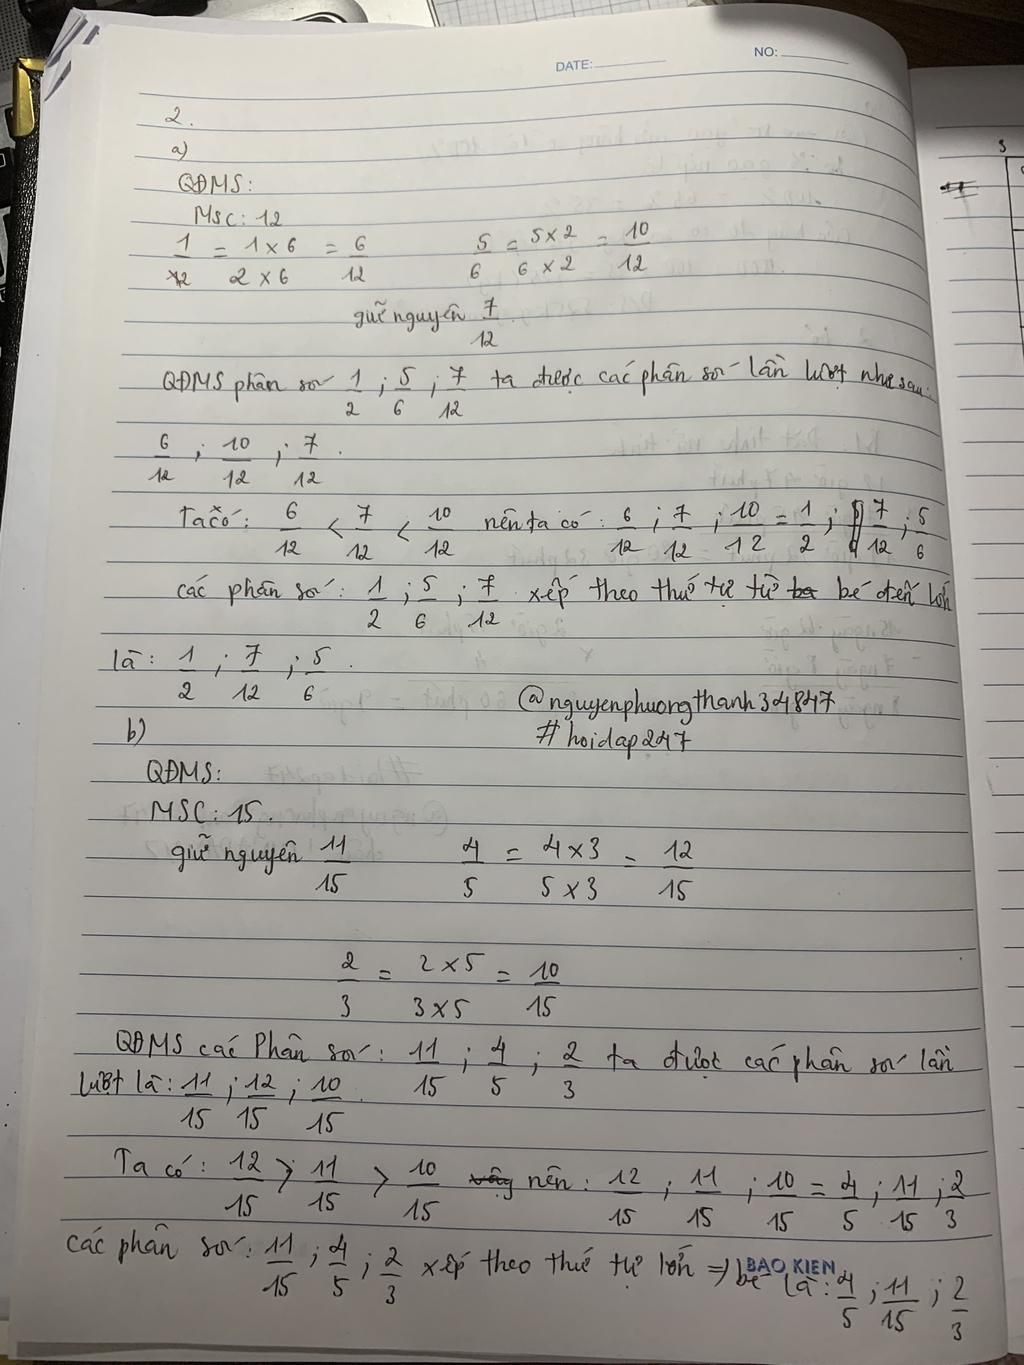 DATE: NO:
2.
a)
QĐMS:
MSC: 12
1/2 = 1 x 6 / 2 x 6 = 6/12 5/6 = 5 x 2 / 6 x 2 = 10/12
giữ nguyên 7/12
QĐMS phân số 1/2 ; 5/6 ; 7/12 ta được các phân số lần lượt như sau:
6/12 ; 10/12 ; 7/12 .
Ta có: 6/12 < 7/12 < 10/12 nên ta có: 6/12 ; 7/12 ; 10/12 = 1/2 ; 7/12 ; 5/6
các phân số: 1/2 ; 5/6 ; 7/12 xếp theo thứ tự từ bé đến lớn
là: 1/2 ; 7/12 ; 5/6 .
@nguyenphuongthanh34847
#hoidap247
b)
QĐMS:
MSC: 15.
giữ nguyên 11/15 4/5 = 4 x 3 / 5 x 3 = 12/15
2/3 = 2 x 5 / 3 x 5 = 10/15
QĐMS các Phân số: 11/15 ; 4/5 ; 2/3 ta được các phân số lần
lượt là: 11/15 ; 12/15 ; 10/15 .
Ta có: 12/15 > 11/15 > 10/15 nên: 12/15 ; 11/15 ; 10/15 = 4/5 ; 11/15 ; 2/3
các phân số: 11/15 ; 4/5 ; 2/3 xếp theo thứ tự lớn => bé là: 4/5 ; 11/15 ; 2/3
BAO KIEN